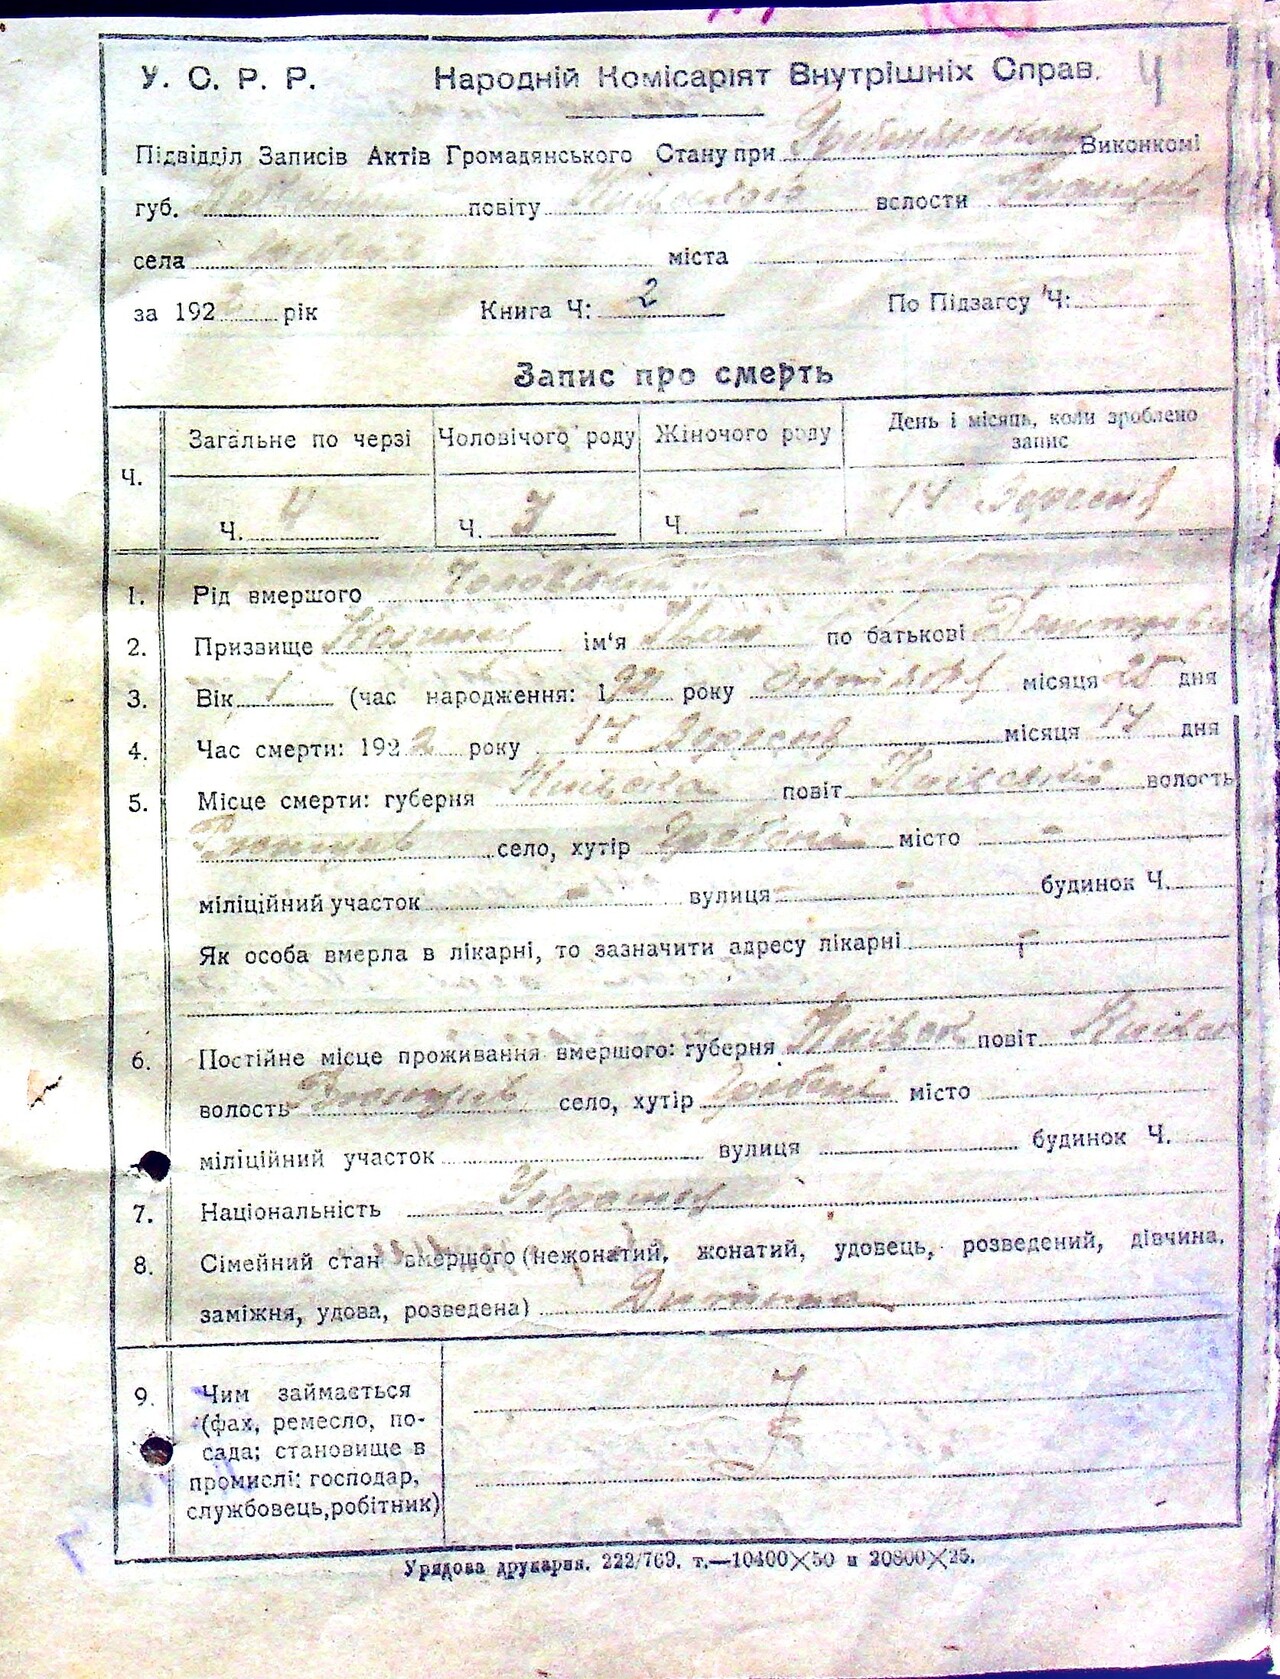 4
У. С. Р. Р. Народній Комісаріят Внутрішніх Справ.
Підвідділ Записів Актів Громадянського Стану при Виконкомі
губ. повіту Київського вслости
села міста
за 192 рік Книга Ч: 2 По Підзагсу Ч:
Запис про смерть
Ч. Загальне по черзі Чоловічого роду Жіночого роду День і місяць, коли зроблено запис
Ч. 4 Ч. 3 Ч. - 14 Вересня
1. Рід вмершого
2. Призвище ім'я Іван по батькові Дмитрович
3. Вік 1 (час народження: 1921 року місяця 25 дня
4. Час смерти: 1922 року 14 Вересня місяця 14 дня
5. Місце смерти: губерня Київска повіт Київский волость
село, хутір Гребені місто -
міліційний участок - вулиця - - будинок Ч.
Як особа вмерла в лікарні, то зазначити адресу лікарні -
6. Постійне місце проживання вмершого: губерня Київск повіт Київск
волость село, хутір Гребені місто
міліційний участок вулиця будинок Ч.
7. Національність
8. Сімейний стан вмершого (нежонатий, жонатий, удовець, розведений, дівчина,
заміжня, удова, розведена) Дитина
9. Чим займається
(фах, ремесло, по-
сада; становище в
промислі: господар,
службовець, робітник)
Урядова друкарня. 222/769. т.—10400×50 и 20800×25.